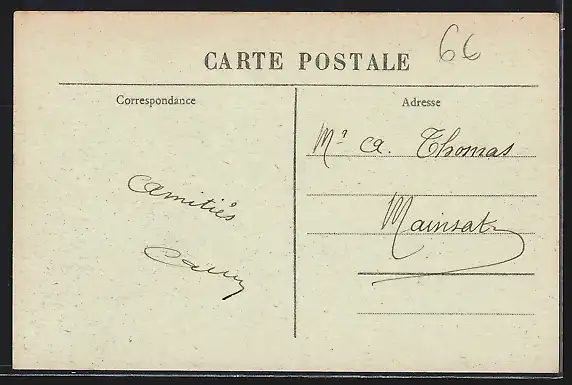 66
CARTE POSTALE
Correspondance
Adresse
Mr Ca. Thomas
Mainsat
Camitiés